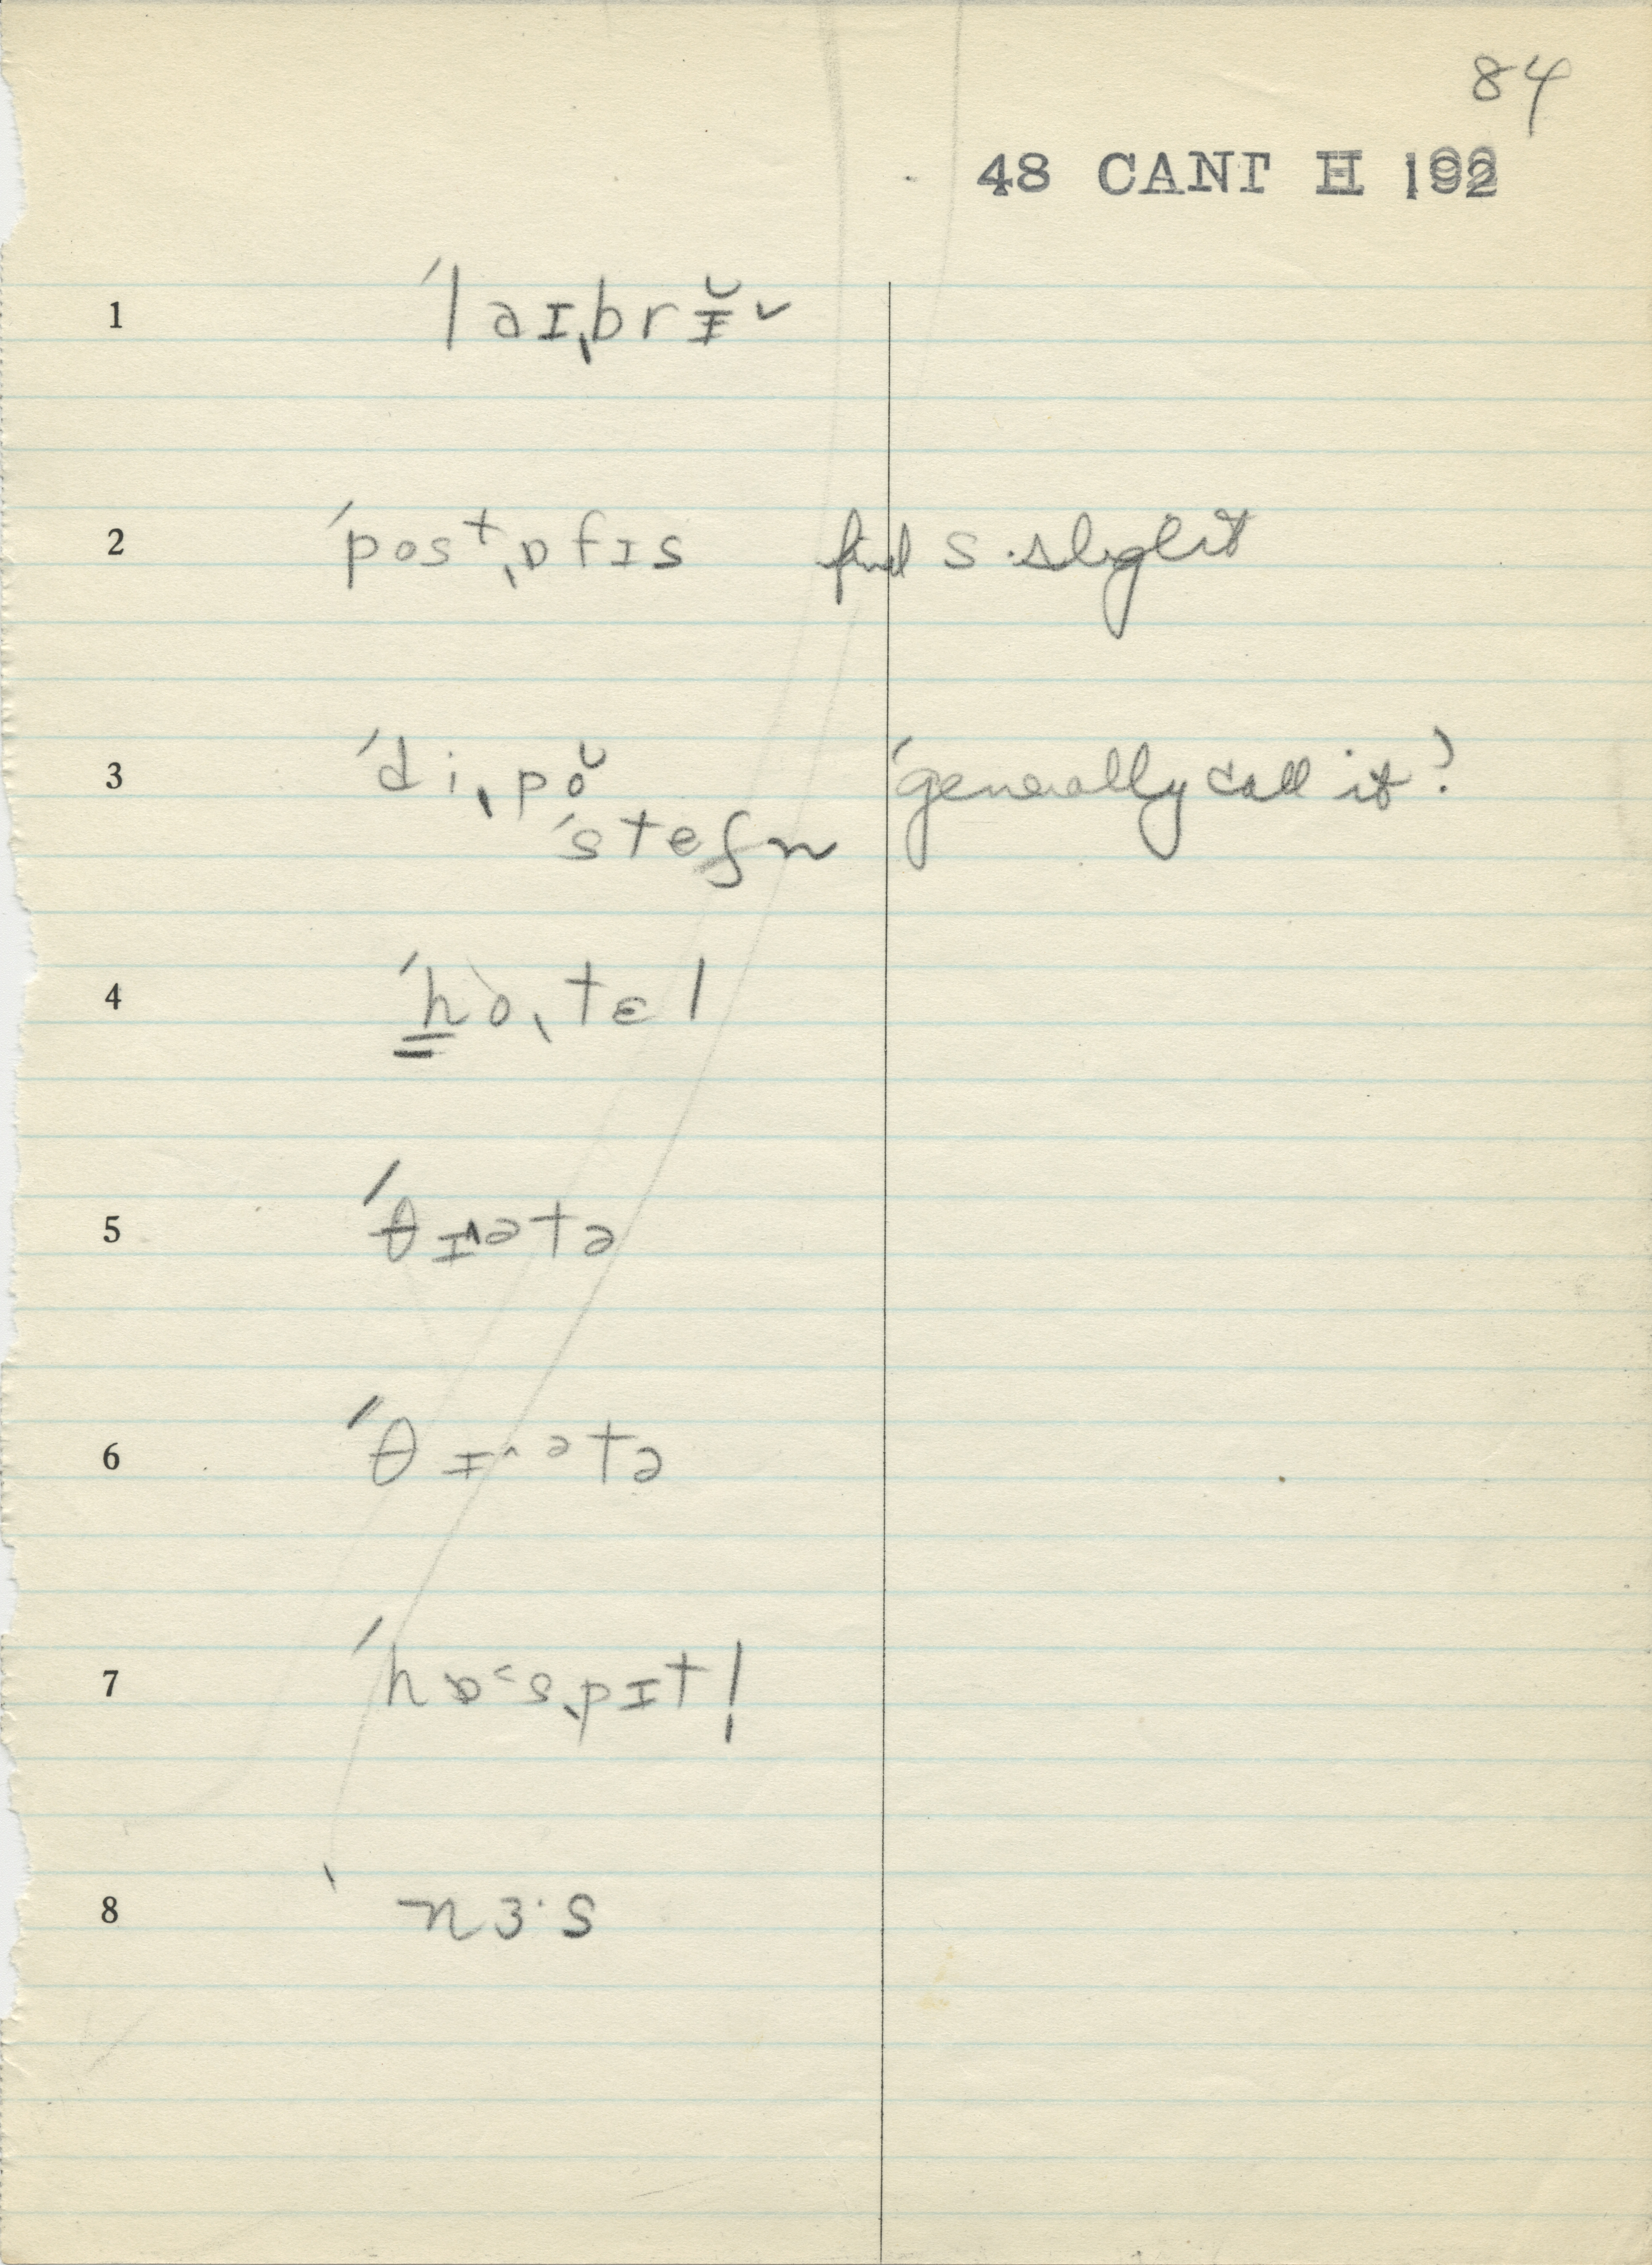 84
48 CANT H 192
1 ˈlaɪˌbrɪ̆˅
2 ˈposᵗˌɒfɪs final s slight
3 ˈdiˌpŏ 'generally call it'
ˈsteʃn
4 ˈhoˌtɛl
5 ˈθɪ˄ətə
6 ˈθɪ˄ətə
7 ˈhɒ˂sˌpɪtl̩
8 ˋ nɜ·s